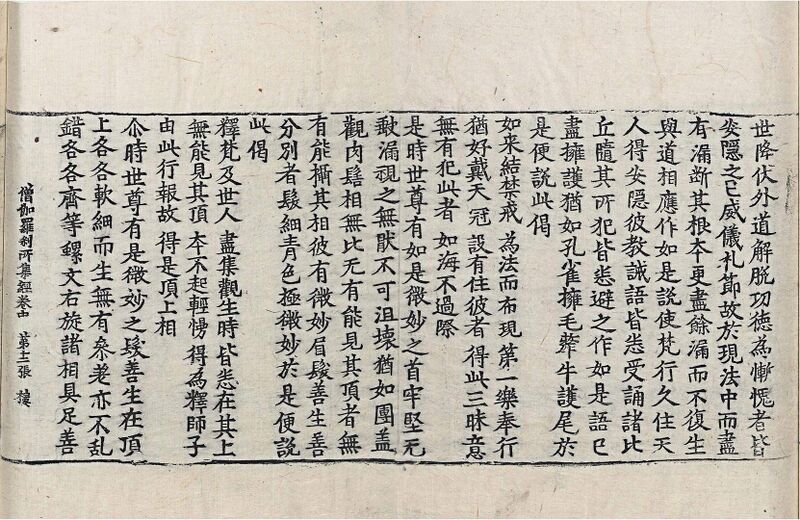 世降伏外道解脱功徳為慚愧者皆
安隠之已威儀礼節故於現法中而盡
有漏断其根夲更盡餘漏而不復生
與道相應作如是說使梵行久住天
人得安隠彼教誡語皆悉受誦諸比
丘隨其所犯皆悉避之作如是語已
盡擁護猶如孔雀擁毛犛牛護尾於
是便說此偈
如来結禁戒 為法而布現 第一樂奉行
猶好戴天冠 設有住彼者 得此三昧意
無有犯此者 如海不過際
是時世尊有如是微妙之首牢堅无
敢漏視之無猒不可沮壞猶如團盖
觀肉髻相無比无有能見其頂者無
有能攝其相彼有微妙眉髮善生善
分別者髮細青色極微妙於是便說
此偈
釋梵及世人 盡集觀生時 皆悉在其上
無能見其頂 夲不起輕慢 得為釋師子
由此行報故 得是頂上相
尒時世尊有是微妙之髮善生在頂
上各各軟細而生無有亲老亦不乱
錯各各齊等螺文右旋諸相具足善
僧伽羅刹所集經卷中 第十二張 樓